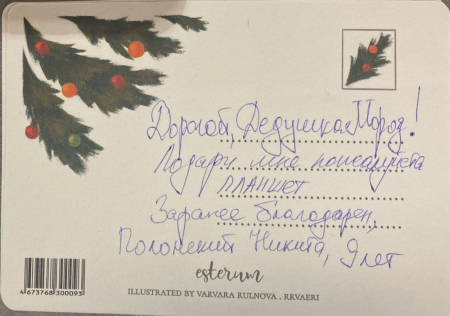 Дорогой, Дедушка Мороз!
Подари мне пожалуйста
планшет
Заранее благодарен,
Полонский Никита, 9 лет
esterum
ILLUSTRATED BY VARVARA RULNOVA . RRVAERI
4 673768 300093